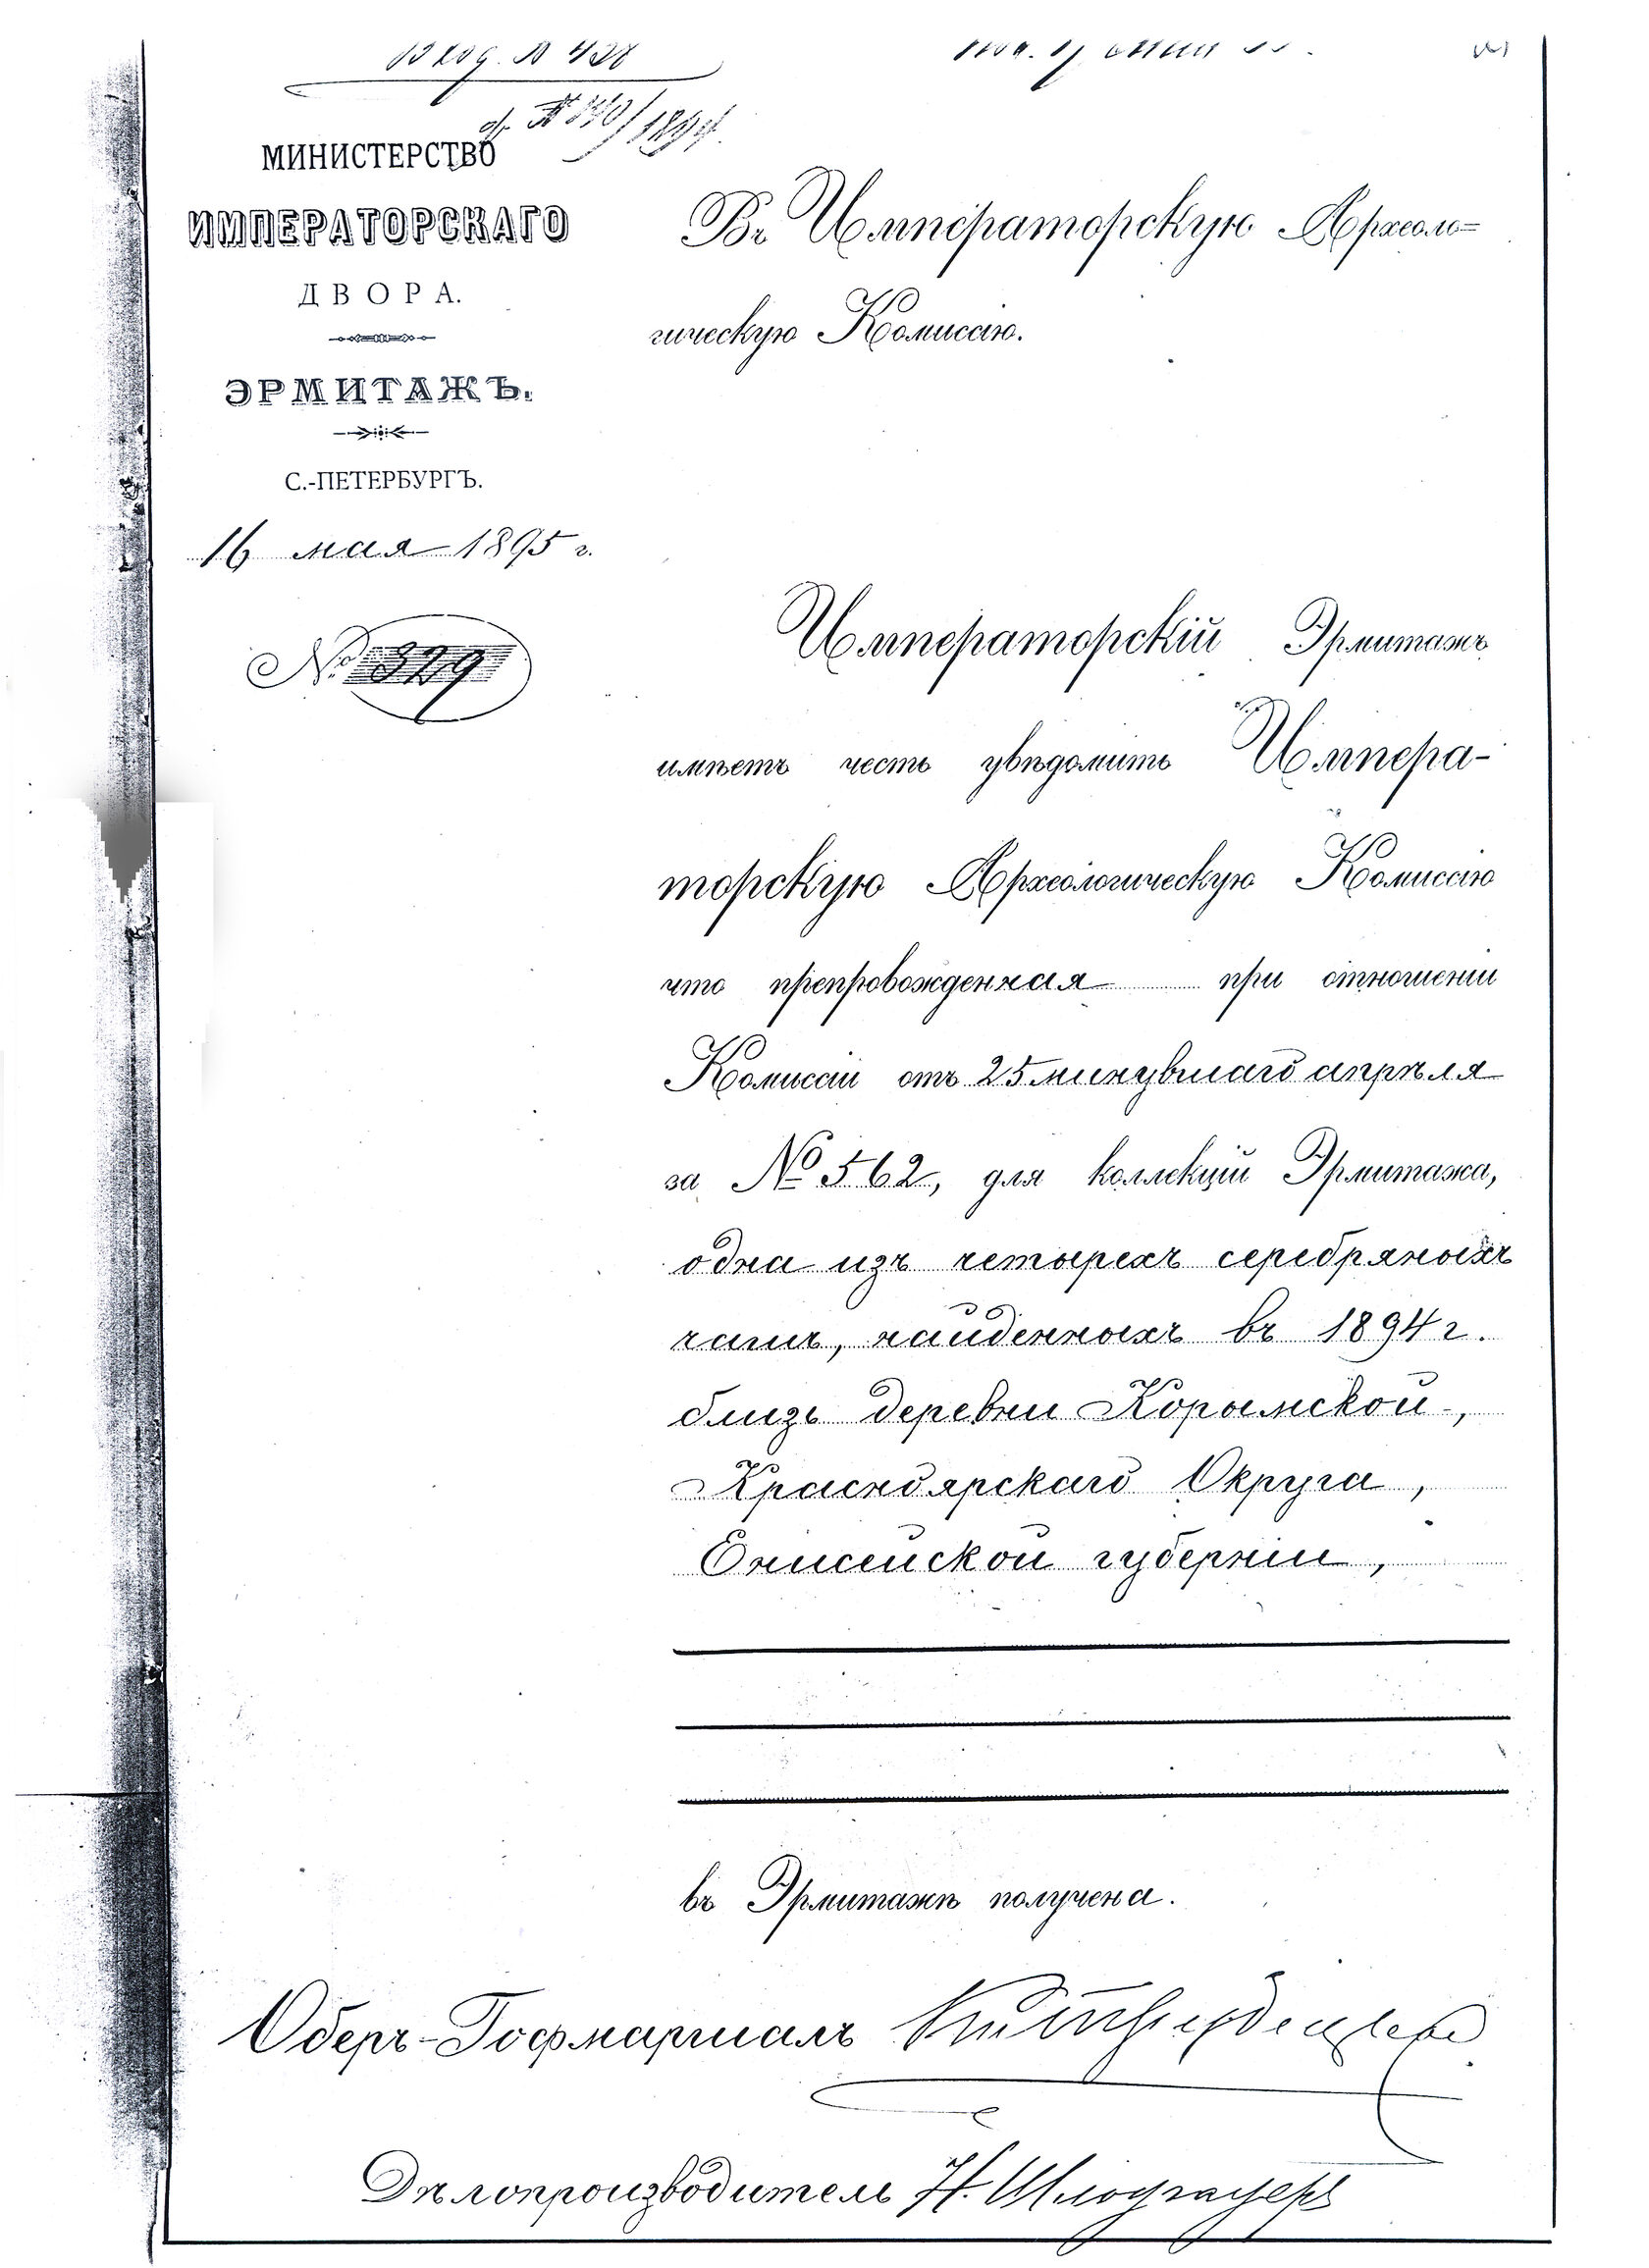 Вход. № 438
д. № 140/1894.
МИНИСТЕРСТВО
ИМПЕРАТОРСКАГО
ДВОРА.
ЭРМИТАЖЪ.
С.-ПЕТЕРБУРГЪ.
16 мая 1895 г.
№ 329
Въ Императорскую Археоло=
гическую Комиссію.
Императорскій Эрмитажъ
имѣетъ честь увѣдомить Импера-
торскую Археологическую Комиссію
что препровожденная при отношеніи
Комиссіи отъ 25 минувшаго апрѣля
за № 562, для коллекцій Эрмитажа,
одна изъ четырехъ серебряныхъ
чашъ, найденныхъ въ 1894 г.
близъ деревни Корымской,
Красноярскаго Округа,
Енисейской губерніи,
въ Эрмитажѣ получена.
Оберъ-Гофмаршалъ
Дѣлопроизводитель Н.